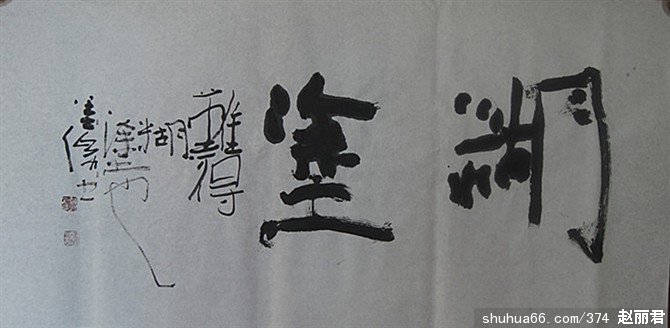 糊塗
難得
糊
涂也
shuhua66.com/374 赵丽君